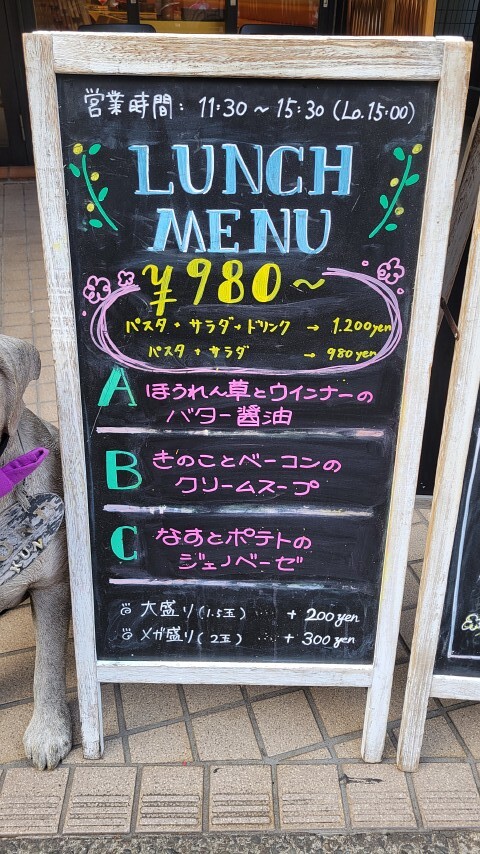 営業時間： 11:30 ～ 15:30 (Lo.15:00)
LUNCH
MENU
¥980～
パスタ + サラダ + ドリンク → 1.200yen
パスタ + サラダ → 980yen
A ほうれん草とウインナーの
バター醤油
B きのことベーコンの
クリームスープ
C なすとポテトの
ジェノベーゼ
大盛り (1.5玉) ‥‥ + 200yen
メガ盛り (2玉) ‥‥ + 300yen
KUN